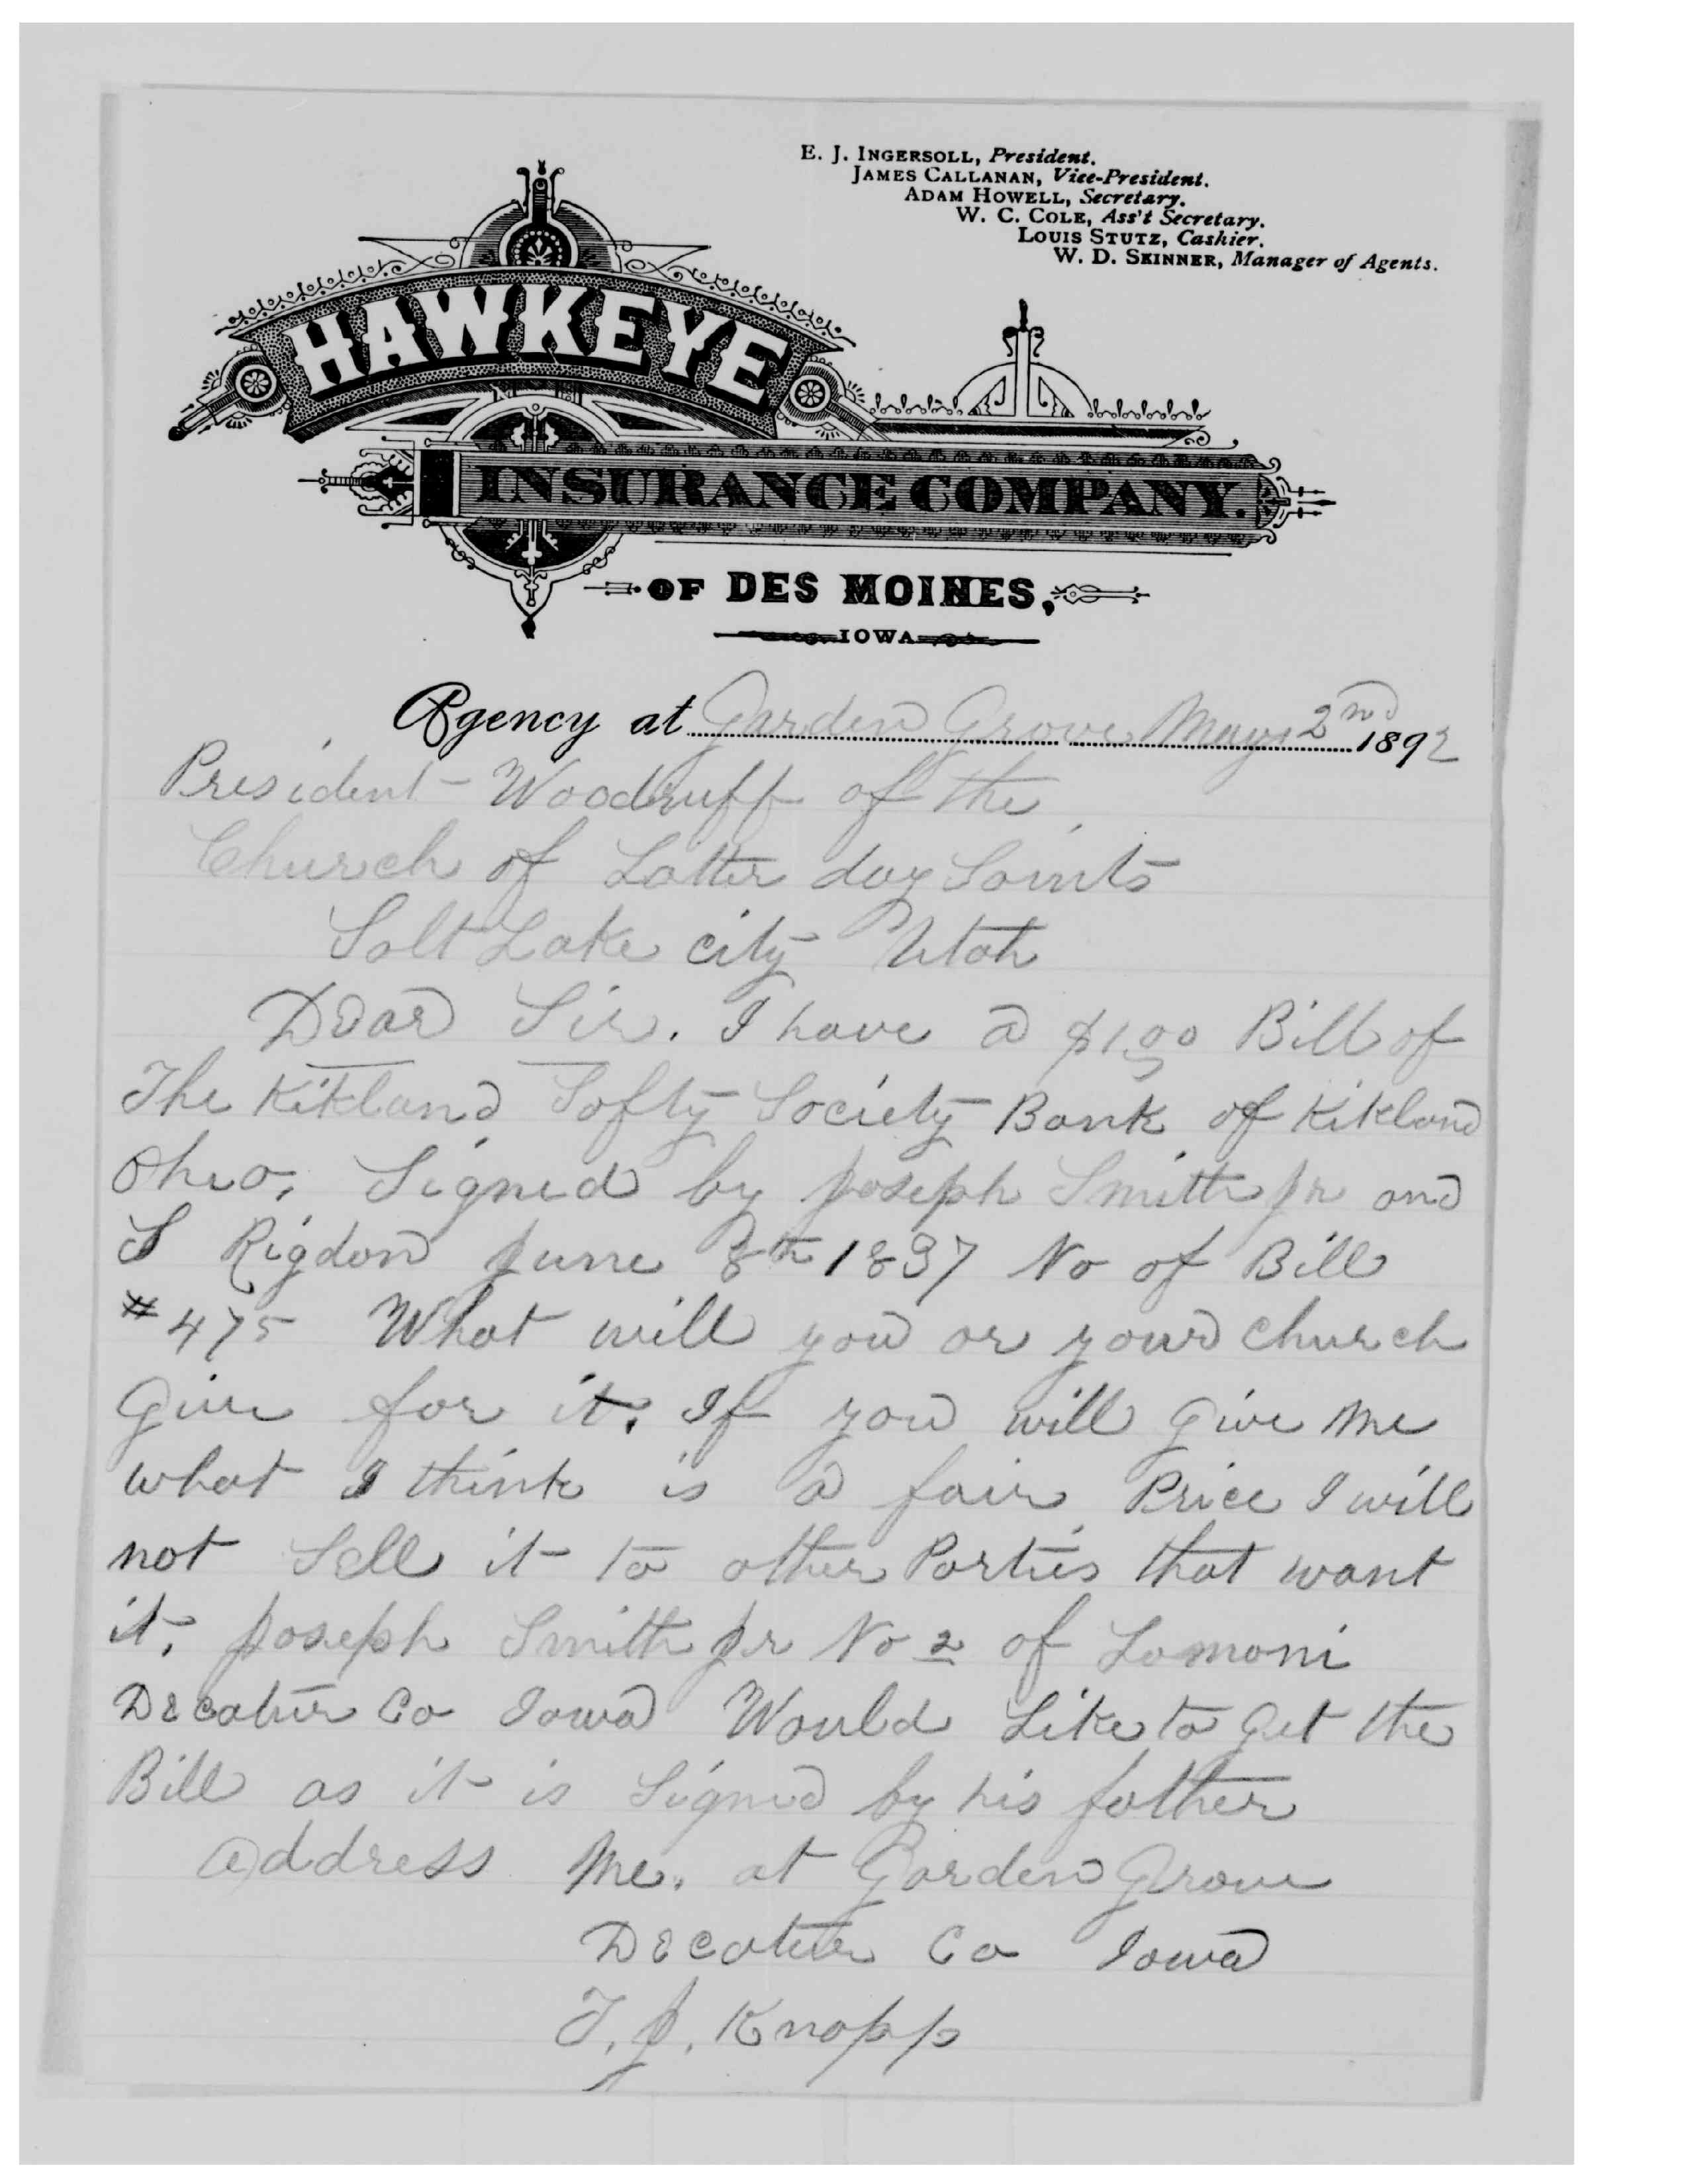 E. J. INGERSOLL, President.
JAMES CALLANAN, Vice-President.
ADAM HOWELL, Secretary.
W. C. COLE, Ass't Secretary.
LOUIS STUTZ, Cashier.
W. D. SKINNER, Manager of Agents.
HAWKEYE
INSURANCE COMPANY.
OF DES MOINES,
IOWA
Agency at Garden Grove May 2nd 1892
President Woodruff of the
Church of Latter day Saints
Salt Lake city Utah
Dear Sir. I have a $1.00 Bill of
The Kitkland Safty Society Bank of Kitkland
Ohio, Signed by Joseph Smith Jr and
S Rigdon June 8th 1837 No of Bill
#475 What will you or your church
Give for it. If you will Give me
what I think is a fair Price I will
not Sell it to other Parties that want
it. Joseph Smith Jr No 2 of Lamoni
Decatur Co Iowa Would Like to Get the
Bill as it is Signed by his father
address me. at Garden Grove
Decatur Co Iowa
T. J. Knapp